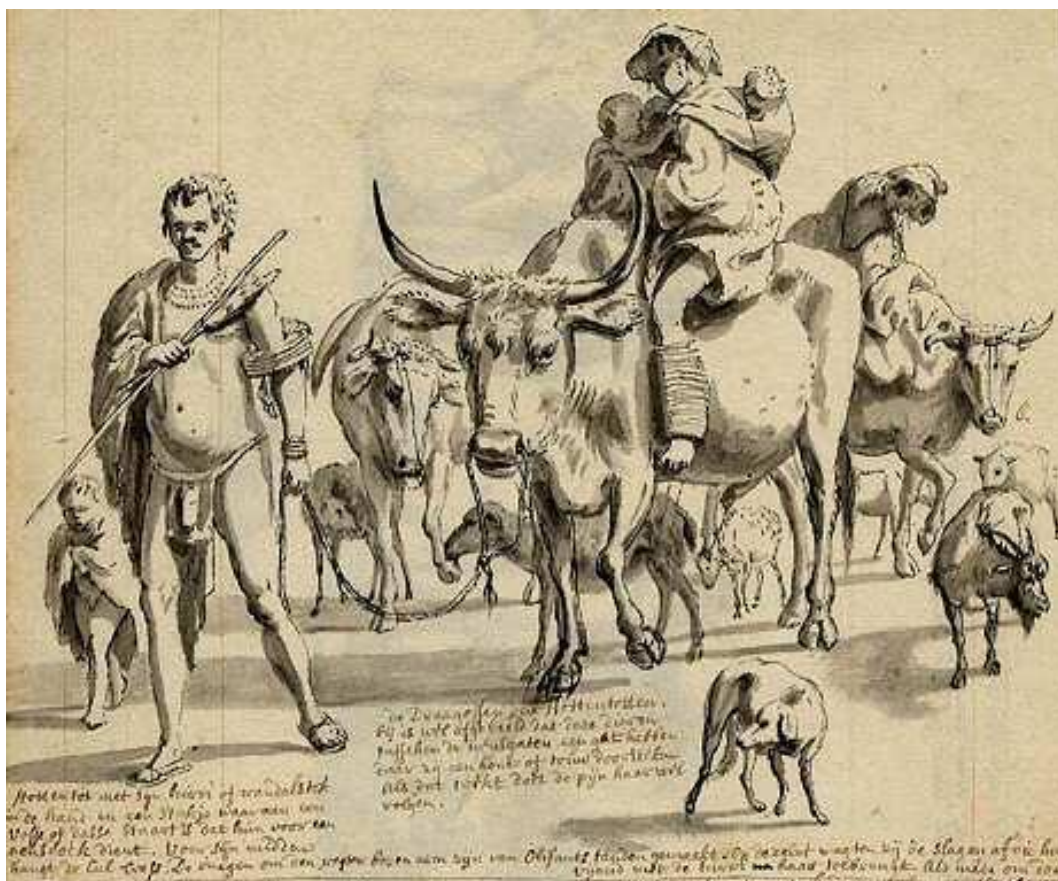 de Draag ossen der Hottentotten.
Hij is wel afgebeeld dat dese dieren
tusschen de neusgaten een gat hebben
daar zij een houtje of touw door steken
als dat trekt doet de pijn haar wel
volgen.
Hottentot met syn kirri of wandelstok
in de hand en een stokje waar aan een
Vosse of dasse staart is dat hun voor een
neusdoek dient. Voor syn midden
hangt de
De ringen om een regter boven arm zyn van Olifants tanden gemaakt. Op dezelve wagten zy de Slagen af die hun
vyand met de kirri haar toebrengt. Als mede om
b.